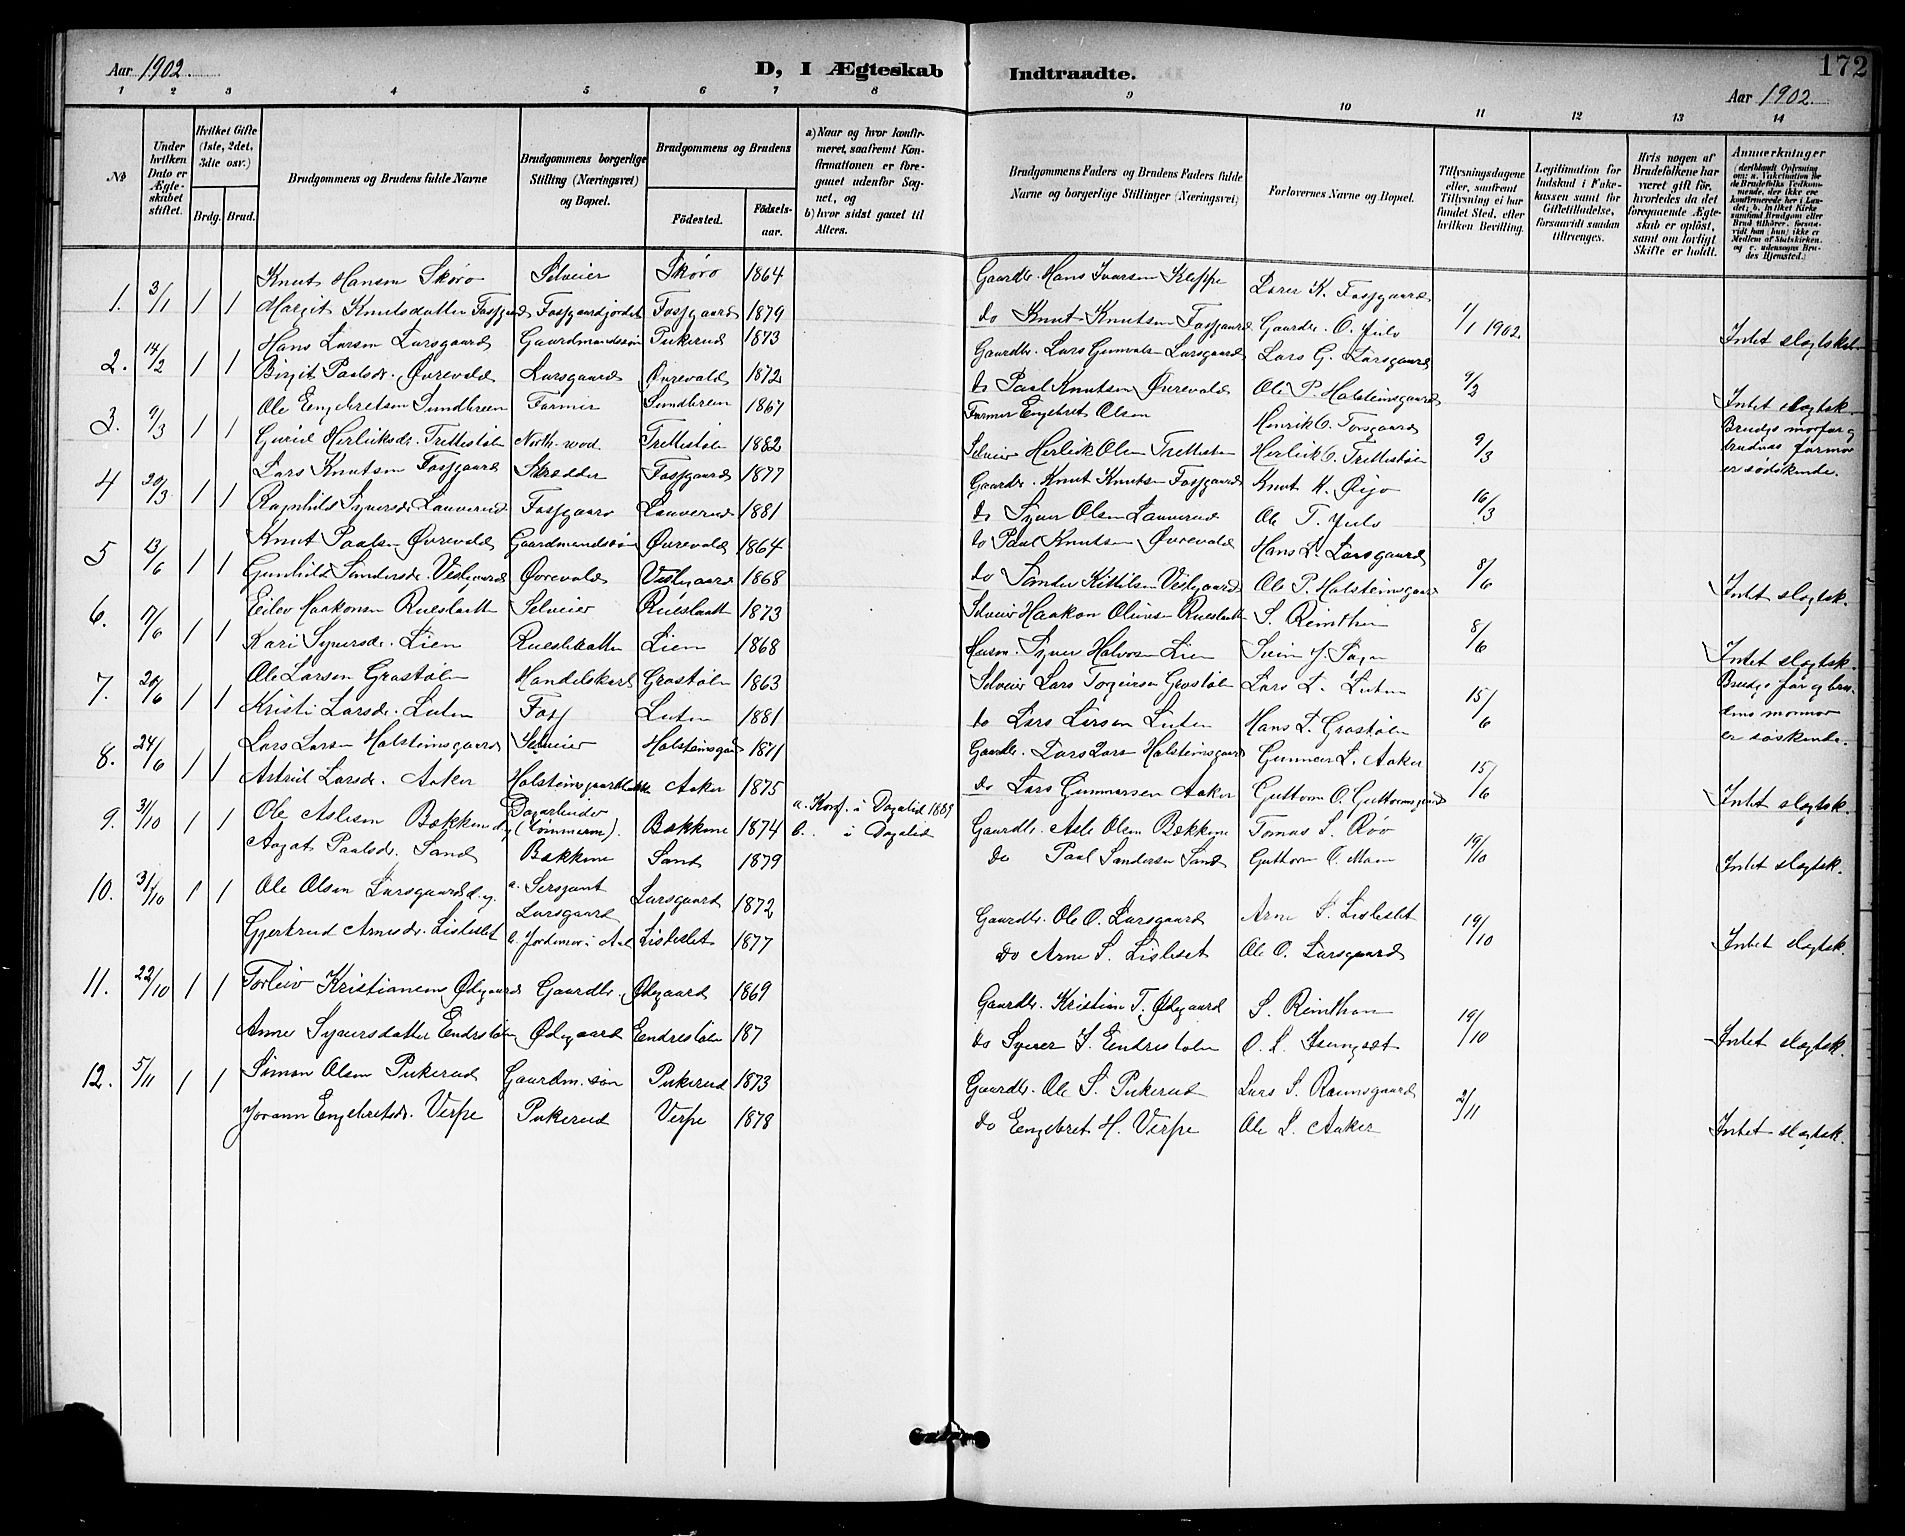 Aar 1902.
D, I Ægteskab
Indtraadte.
172
Aar 1902.
1 2 3 4 5 6 7 8 9 10 11 12 13 14
No
Under hvilken Dato er Ægteskabet stiftet.
Hvilket Gifte (1ste, 2det, 3die osv.)
Brdg. Brud.
Brudgommens og Brudens fulde Navne
Brudgommens borgerlige Stilling (Næringsvei) og Bopæl.
Brudgommens og Brudens
Födested. Födselsaar.
a) Naar og hvor konfirmeret, saafremt Konfirmationen er foregaaet udenfor Sognet, og
b) hvor sidst gaaet til Alters.
Brudgommens Faders og Brudens Faders fulde Navne og borgerlige Stillinger (Næringsvei)
Forlovernes Navne og Bopæl.
Tillysningsdagene eller, saafremt Tillysning ei har fundet Sted, efter hvilken Bevilling.
Legitimation for Indskud i Enkekassen samt for Giftetilladelse, forsaavidt saadan tiltrænges.
Hvis nogen af Brudefolkene har været gift för, hvorledes da det foregaaende Ægteskab er oplöst, samt om lovligt Skifte er holdt.
Anmærkninger
1. 3/1 1 1 Knut Hansen Skøro Selveier Skøro 1864 Gaardbr. Hans Ivarsen Kleppe K. Fossgaard
Margit Knutsdatter Fossgaard Fossgaardjordet Fossgaard 1879 do Knut Knutsen Fossgaard Gaardbr. O. Juls 1/1 1902. Intet slægtskab
2. 14/2 1 1 Hans Larsen Larsgaard Gaardmandssøn Pukerud 1873 Gaardbr. Lars Gunvalds Larsgaard Lars G. Larsgaard
Birgit Paalsdr. Øvrevald Larsgaard Øvrevald 1872 do Paal Knutsen Øvrevald Ole P. Holsteinsgaard 9/2 Intet slægtsk.
3. 9/3 1 1 Ole Engebretsen Sundbreen Farmer Sundbreen 1867 Farmer Engebret Olsen Henrik O. Torsgaard
Guril Herleiksdr. Trettestølen North-wod Trettestølen 1882 Selveier Herleik Olsen Trettestølen Herleik O. Trettestølen 9/3 Brudgs morfar og brudens farmor er sødskende.
4 20/3 1 1 Lars Knutsen Fossgaard Skrædder Fossgaard 1877 Gaardbr. Knut Knutsen Fossgaard Knut K. Øijo
Ragnhild Syversdr. Lauverud Fossgaard Lauverud 1881 do Syver Olsen Lauverud Ole T. Juls 16/3
5 13/6 1 1 Knut Paalsen Øvrevald Gaardmandssøn Øvrevald 1864 do Paul Knutsen Øvrevald Hans L. Larsgaard
Gunhild Sandersdr. Vestegaard Øvrevald Vestegaard 1868 do Sander Kittilsen Vestegaard Ole P. Holsteinsgaard 8/6 Intet slægtsk.
6. 17/6 1 1 Eilev Haakonsen Rueslaatten Selveier Rueslaatten 1873 Selveier Haakon Olsen Rueslaatten S. Reinthon
Kari Syversdr. Lien Rueslaatten Lien 1868 Husm. Syver Halvorsen Lien 8/6 Intet slægtsk.
7. 20/6 1 1 Ole Larsen Grøstølen Handelskarl Grøstølen 1863 Selveier Lars Torgeirsen Grøstølen Lars L. Luten
Kristi Larsdr. Luten Foss Luten 1881 do Lars Larsen Luten Hans L. Grøstølen 15/6 Brudgs far og brudens mormor er søskende.
8. 24/6 1 1 Lars Larsen Holsteinsgaard Selveier Holsteinsgaard 1871 Gaardbr. Lars Larsen Holsteinsgaard Gunnar L. Aaker
Astrid Larsdr. Aaker Holsteinsgaardbakken Aaker 1875 do Lars Gunnarsen Aaker Guttorm O. Guttormsgaard 15/6 Intet slægtsk.
9. 31/10 1 1 Ole Aslesen Bækkene Dagarbeider (tömmerm). Bækkene 1874 a. Konf. i Dagalid 1889 b. i Dagalid Gaardbr. Asle Olsen Bækkene Tomas S. Røo
Aagot Paalsdr. Sand Bækkene Sand 1879 do Paal Sandersen Sand Guttorm O. Moen 19/10 Intet slægtsk.
10. 31/10 1 1 Ole Olsen Larsgaard d.y. a. Sersjant Larsgaard Larsgaard 1872 Gaardbr. Ole O. Larsgaard Arne S. Lisleslet
Gjertrud Arnesdr. Lisleslet b. Jordemor i Aal Lisleslet 1877 do Arne S. Lisleslet Ole O. Larsgaard 19/10 Intet slægtsk.
11. 22/10 1 1 Torleiv Kristiansen Ødegaard Gaardbr. Ødegaard 1869 Gaardbr. Kristian T. Ødegaard S. Reinthon
Anne Syversdatter Endrestølen Ødegaard Endrestølen 187 do Syver S. Endrestølen 19/10 Intet slægtsk.
12. 5/11 1 1 Simon Olsen Pukerud Gaardm.søn Pukerud 1873 Gaardbr. Ole S. Pukerud Lars S. Ramsgaard
Jorann Engebretsdr. Verpe Pukerud Verpe 1878 do Engebret H. Verpe Ole L. Aaker 2/11 Intet slægtsk.